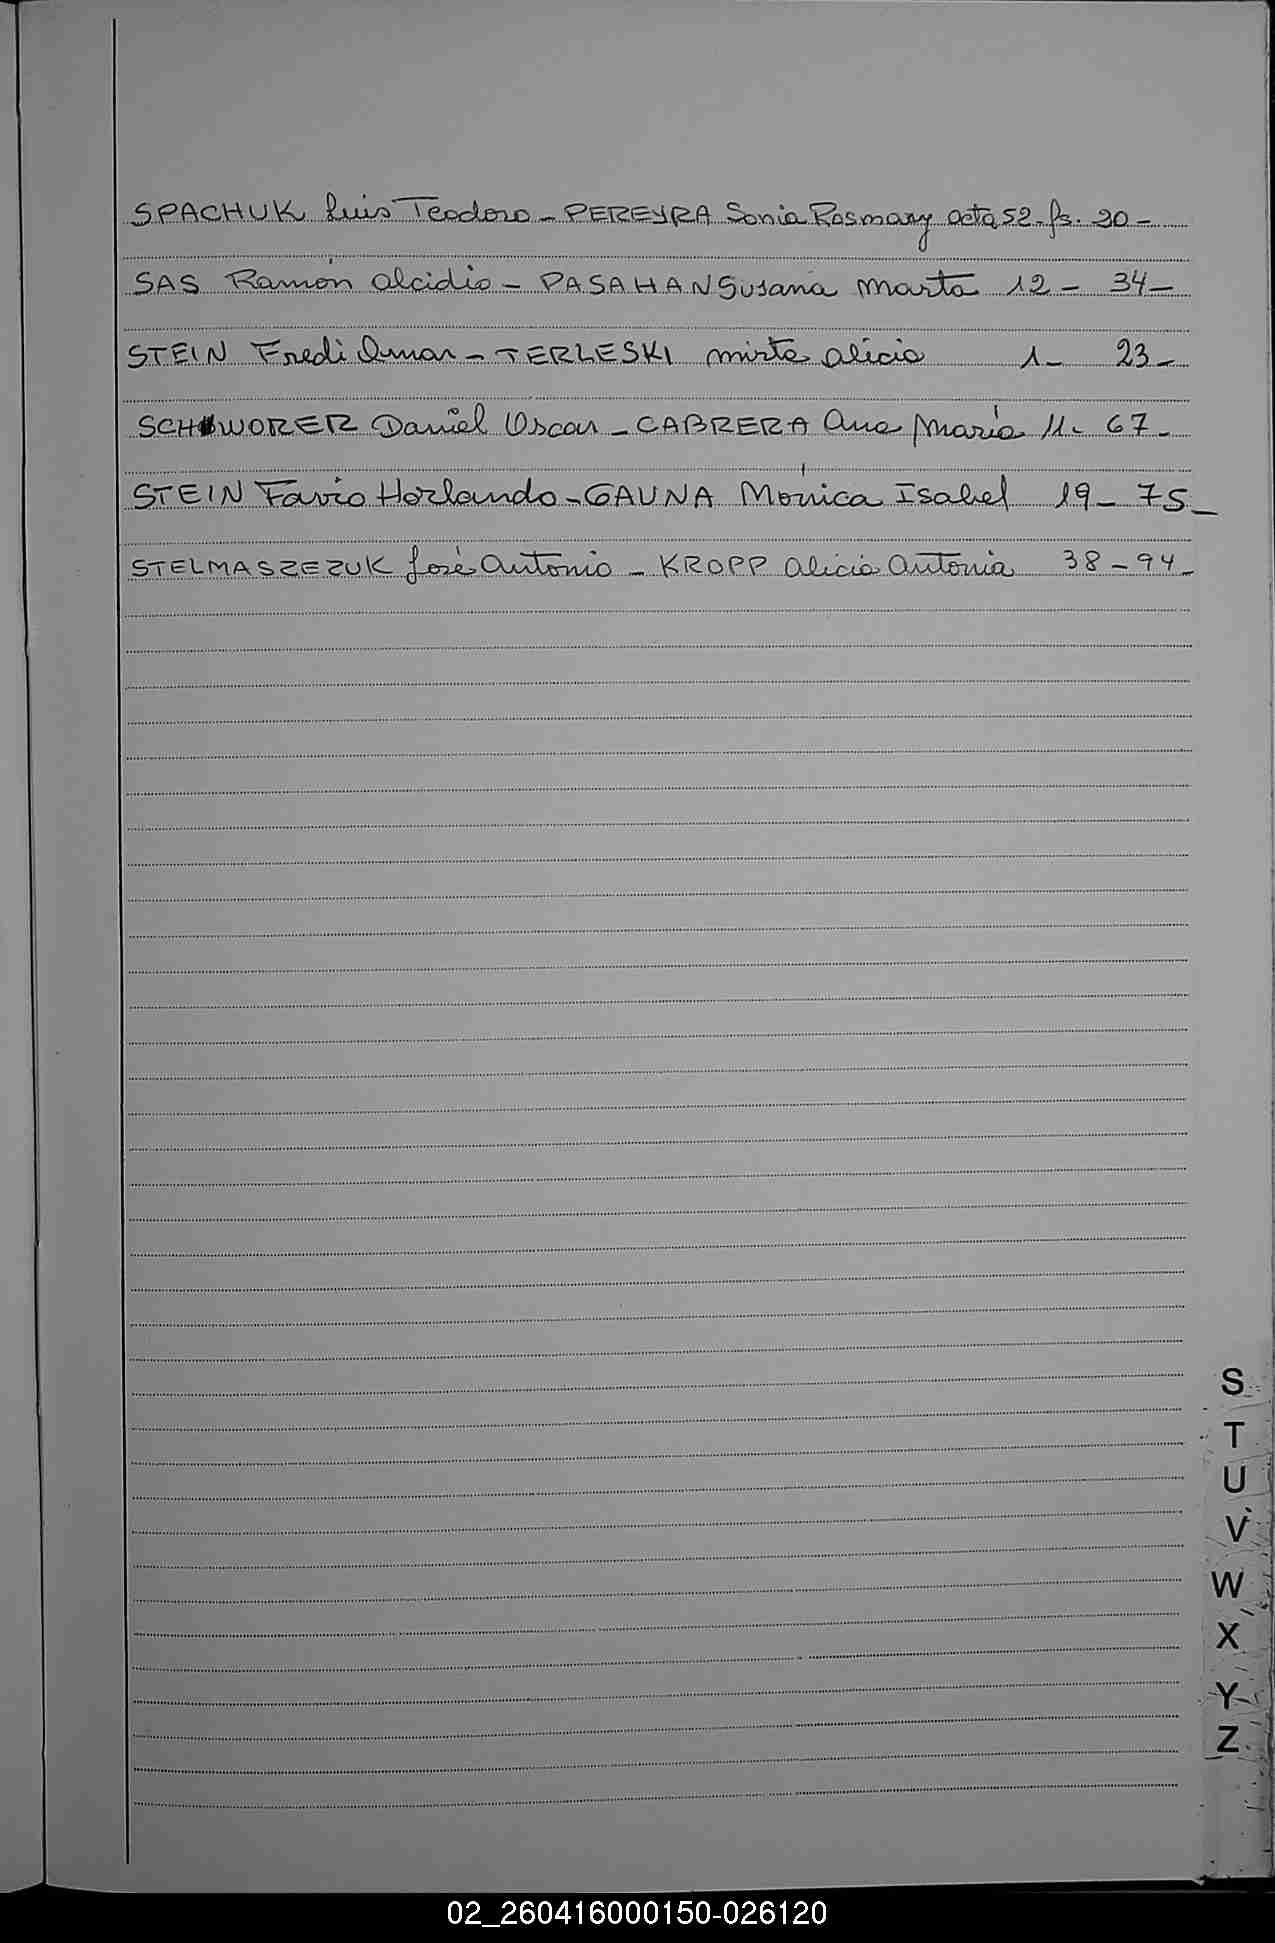 SPACHUK Luis Teodoro - PEREYRA Sonia Rosmary acta 52 - fs. 90 -
SAS Ramón Alcidio - PASAHAN Susana Marta 12 - 34 -
STEIN Fredi Omar - TERLESKI Mirta Alicia 1 - 23 -
SCHWORER Daniel Oscar - CABRERA Ana María 11 - 67 -
STEIN Favio Horlando - GAUNA Mónica Isabel 19 - 75 -
STELMASZEZUK José Antonio - KROPP Alicia Antonia 38 - 94 -
S
T
U
V
W
X
Y
Z
02_260416000150-026120